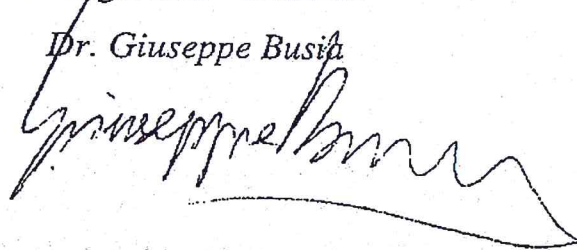 Dr. Giuseppe Busia
Giuseppe Busia